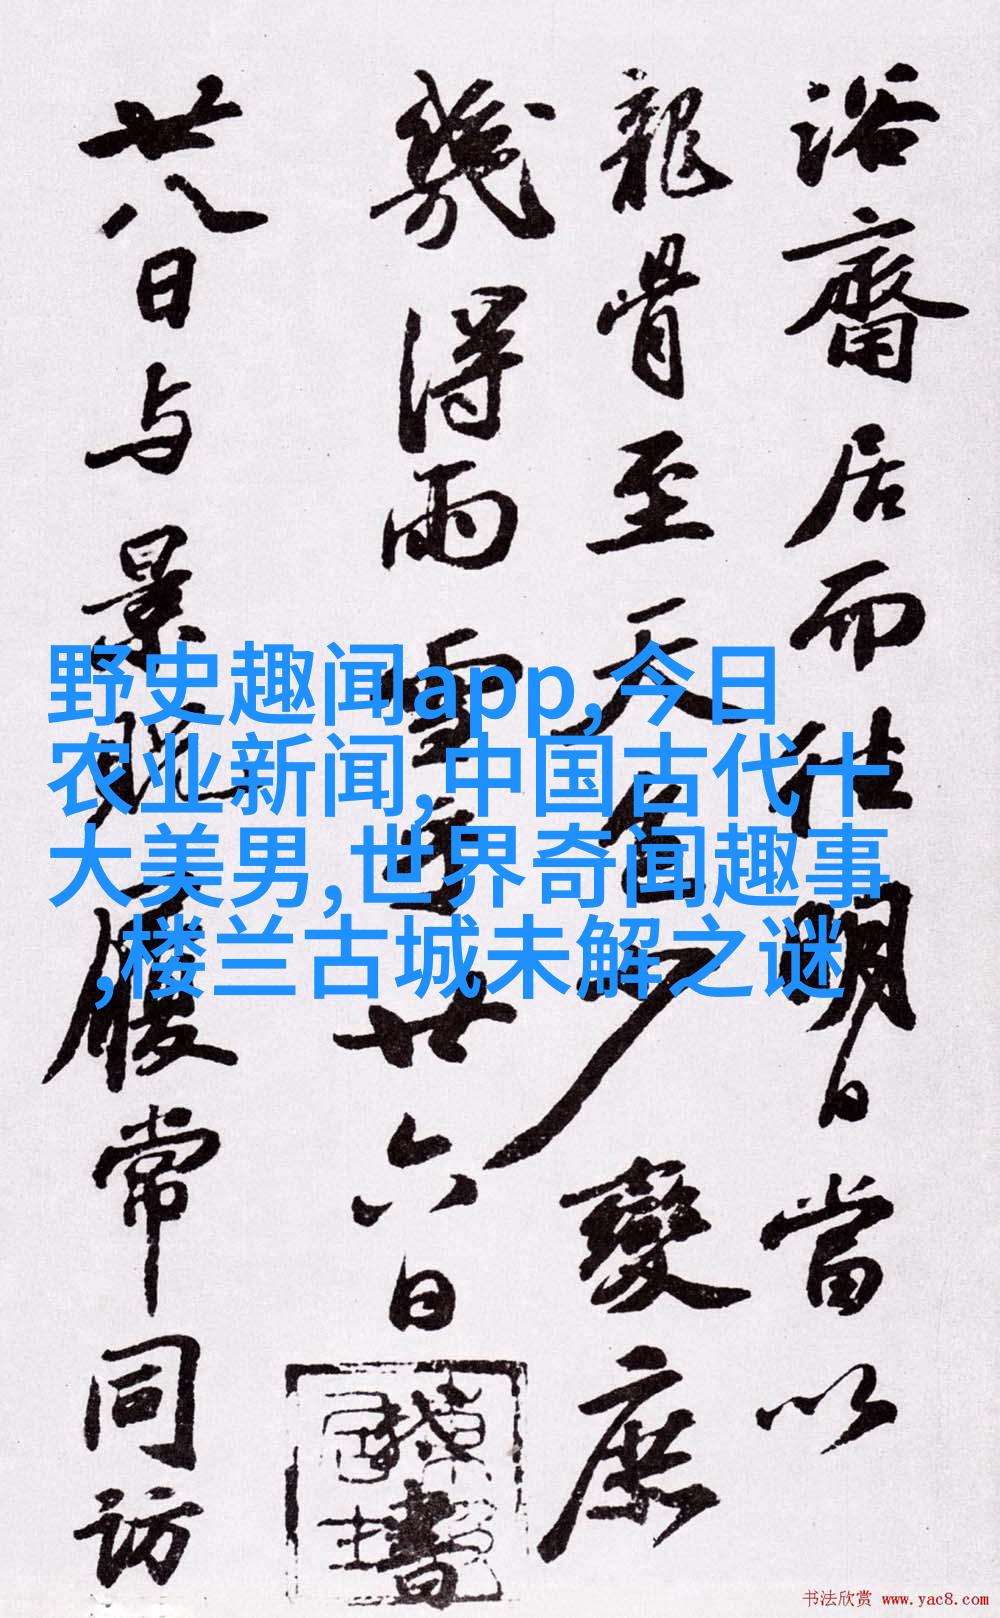 浴齋居而往明日當以
龍骨至天色少變庶
幾得雨雪乎廿六日書
廿八日与景貺履常同訪
野史趣闻app,今日
农业新闻,中国古代十
大美男,世界奇闻趣事
,楼兰古城未解之谜
书法欣赏 www.yac8.com